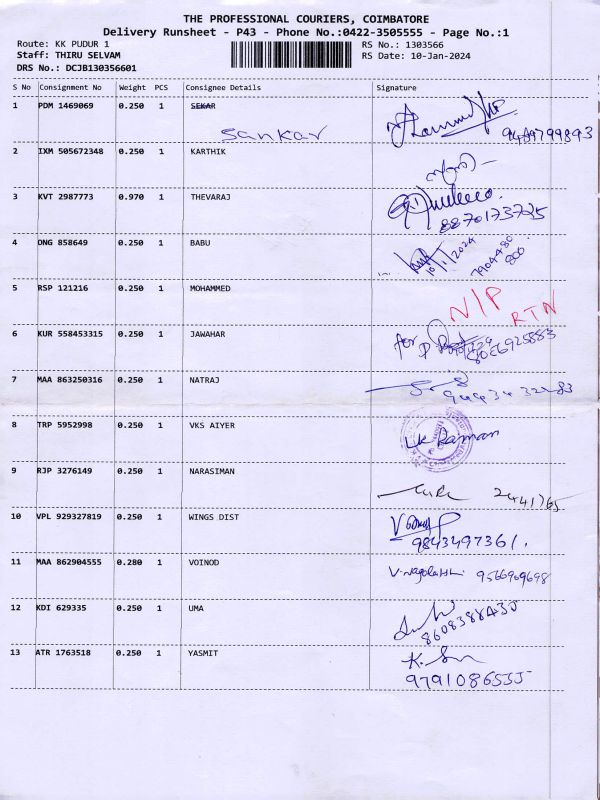 THE PROFESSIONAL COURIERS, COIMBATORE
Delivery Runsheet - P43 - Phone No.:0422-3505555 - Page No.:1
Route: KK PUDUR 1 RS No.: 1303566
Staff: THIRU SELVAM RS Date: 10-Jan-2024
DRS No.: DCJB130356601
S No Consignment No Weight PCS Consignee Details Signature
1 PDM 1469069 0.250 1 SEKAR
Sankar
2 IXM 505672348 0.250 1 KARTHIK
3 KVT 2987773 0.970 1 THEVARAJ
8870173725
4 ONG 858649 0.250 1 BABU
10/1/2024 7904480
800
5 RSP 121216 0.250 1 MOHAMMED
N/P RTN
6 KUR 558453315 0.250 1 JAWAHAR
for
7 MAA 863250316 0.250 1 NATRAJ
8 TRP 5952998 0.250 1 VKS AIYER
Raman
9 RJP 3276149 0.250 1 NARASIMAN
2441765
10 VPL 929327819 0.250 1 WINGS DIST
9843497361.
11 MAA 862904555 0.280 1 VOINOD
9566969698
12 KDI 629335 0.250 1 UMA
13 ATR 1763518 0.250 1 YASMIT
9791086535